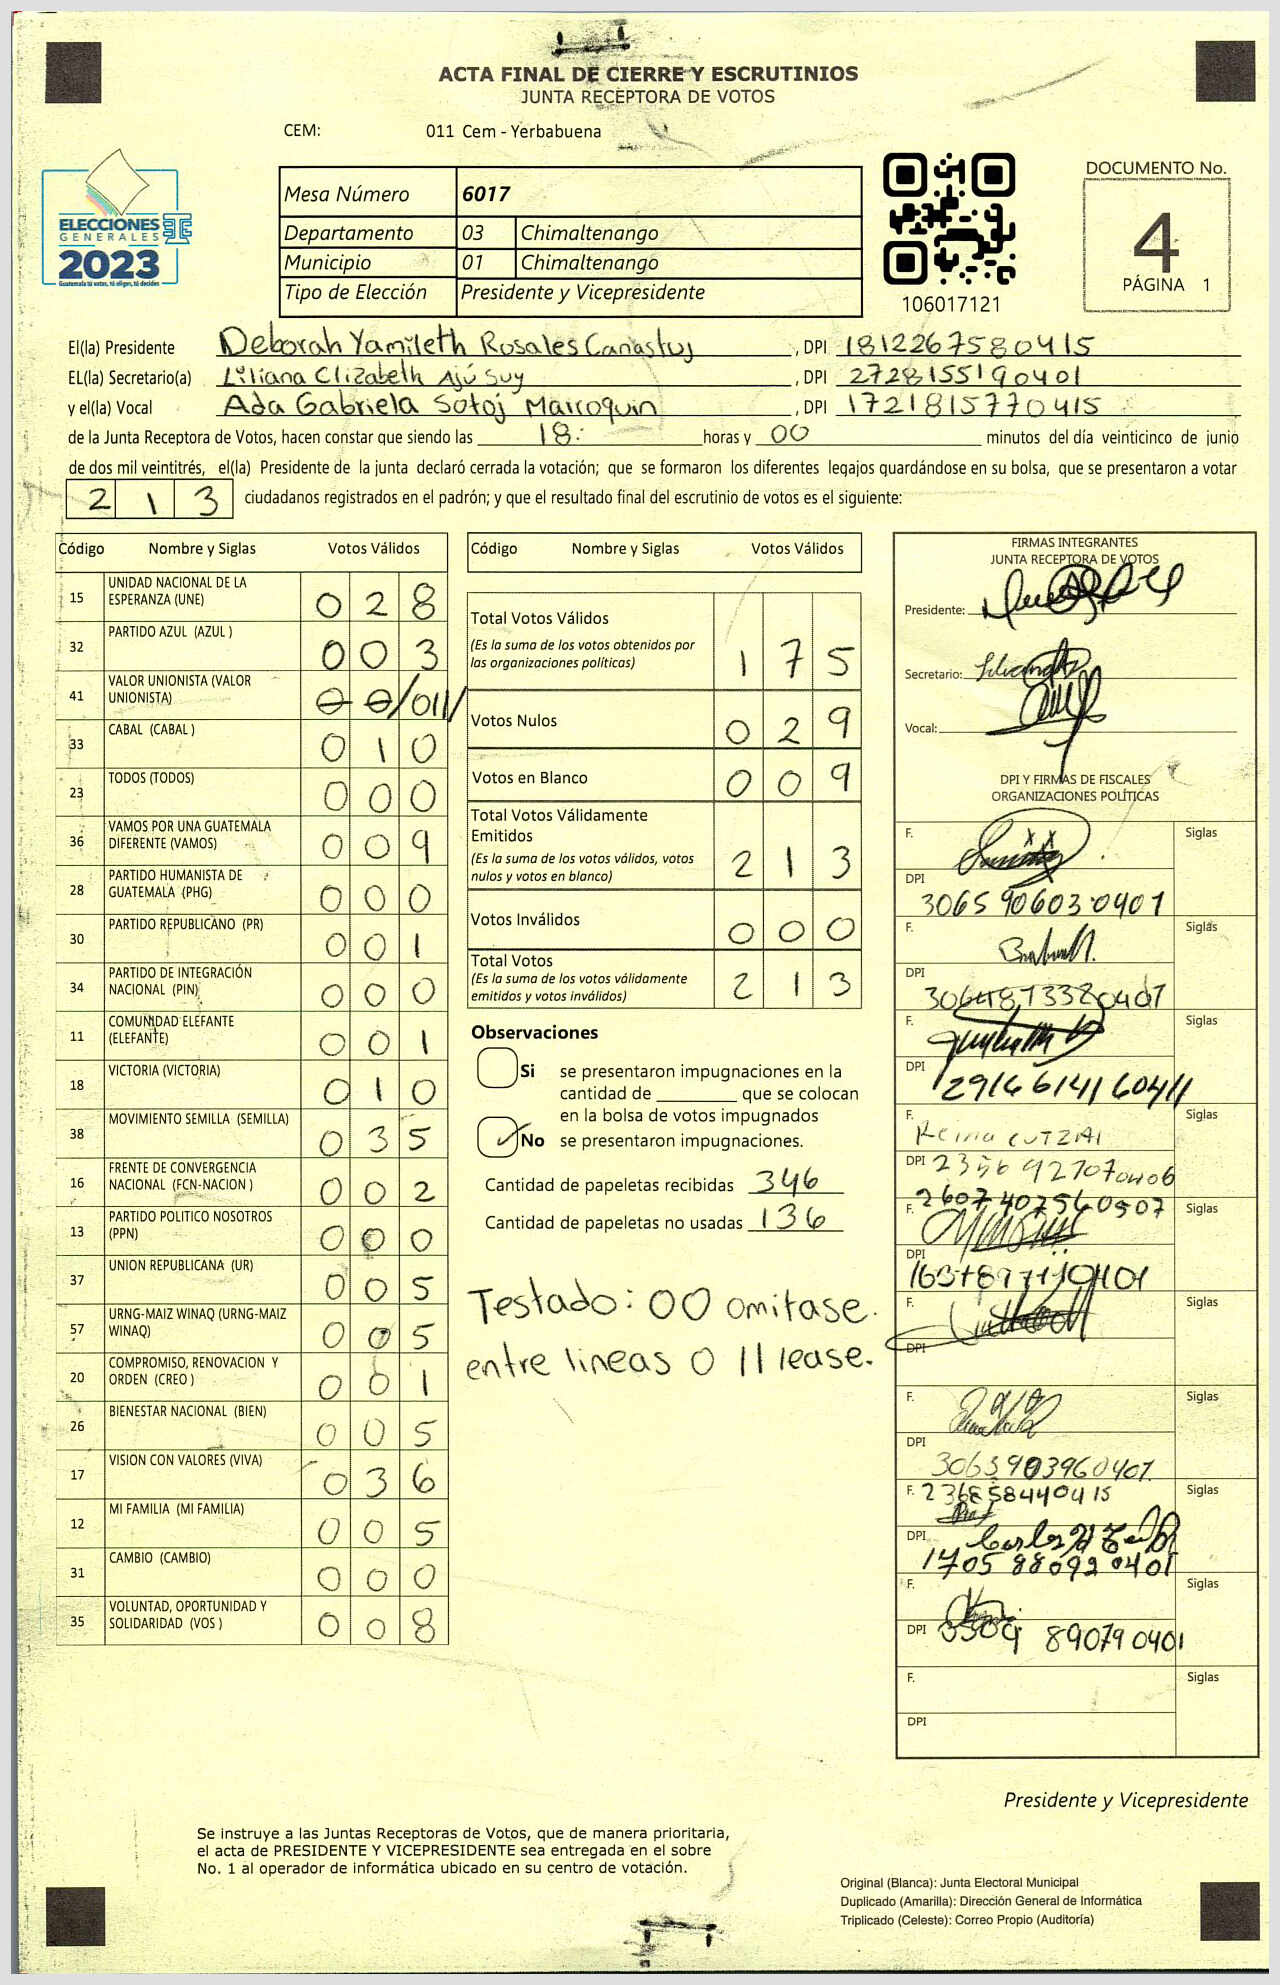 ACTA FINAL DE CIERRE Y ESCRUTINIOS
JUNTA RECEPTORA DE VOTOS
CEM: 011 Cem - Yerbabuena
ELECCIONES
GENERALES
2023
Guatemala tú votas, tú eliges, tú decides
Mesa Número 6017
Departamento 03 Chimaltenango
Municipio 01 Chimaltenango
Tipo de Elección Presidente y Vicepresidente
106017121
DOCUMENTO No.
4
PÁGINA 1
El(la) Presidente Deborah Yamileth Rosales Canastuj, DPI 1812267580415
EL(la) Secretario(a) Liliana Elizabeth Ajú Suy, DPI 2728155190401
y el(la) Vocal Ada Gabriela Sotoj Marroquin, DPI 1721815770415
de la Junta Receptora de Votos, hacen constar que siendo las 18: horas y 00 minutos del día veinticinco de junio
de dos mil veintitrés, el(la) Presidente de la junta declaró cerrada la votación; que se formaron los diferentes legajos guardándose en su bolsa, que se presentaron a votar
213 ciudadanos registrados en el padrón; y que el resultado final del escrutinio de votos es el siguiente:
Código Nombre y Siglas Votos Válidos
15 UNIDAD NACIONAL DE LA ESPERANZA (UNE) 028
32 PARTIDO AZUL (AZUL ) 003
41 VALOR UNIONISTA (VALOR UNIONISTA) 00/011//
33 CABAL (CABAL ) 010
23 TODOS (TODOS) 000
36 VAMOS POR UNA GUATEMALA DIFERENTE (VAMOS) 009
28 PARTIDO HUMANISTA DE GUATEMALA (PHG) 000
30 PARTIDO REPUBLICANO (PR) 001
34 PARTIDO DE INTEGRACIÓN NACIONAL (PIN) 000
11 COMUNIDAD ELEFANTE (ELEFANTE) 001
18 VICTORIA (VICTORIA) 010
38 MOVIMIENTO SEMILLA (SEMILLA) 035
16 FRENTE DE CONVERGENCIA NACIONAL (FCN-NACION ) 002
13 PARTIDO POLITICO NOSOTROS (PPN) 000
37 UNION REPUBLICANA (UR) 005
57 URNG-MAIZ WINAQ (URNG-MAIZ WINAQ) 005
20 COMPROMISO, RENOVACION Y ORDEN (CREO ) 001
26 BIENESTAR NACIONAL (BIEN) 005
17 VISION CON VALORES (VIVA) 036
12 MI FAMILIA (MI FAMILIA) 005
31 CAMBIO (CAMBIO) 000
35 VOLUNTAD, OPORTUNIDAD Y SOLIDARIDAD (VOS ) 008
Código Nombre y Siglas Votos Válidos
Total Votos Válidos 175
(Es la suma de los votos obtenidos por
las organizaciones políticas)
Votos Nulos 029
Votos en Blanco 009
Total Votos Válidamente
Emitidos 213
(Es la suma de los votos válidos, votos
nulos y votos en blanco)
Votos Inválidos 000
Total Votos 213
(Es la suma de los votos válidamente
emitidos y votos inválidos)
Observaciones
Si se presentaron impugnaciones en la
cantidad de ________ que se colocan
en la bolsa de votos impugnados
No se presentaron impugnaciones.
Cantidad de papeletas recibidas 346
Cantidad de papeletas no usadas 136
Testado: 00 omitase.
entre lineas 0 11 lease.
FIRMAS INTEGRANTES
JUNTA RECEPTORA DE VOTOS
Presidente:
Secretario:
Vocal:
DPI Y FIRMAS DE FISCALES
ORGANIZACIONES POLÍTICAS
F. Siglas
DPI 3065906030401
F. Siglas
DPI
F. Siglas
DPI 2916614160411
F. Reina CUTZAI Siglas
DPI 2356927070406
2607407560507
F. Siglas
DPI
F. Siglas
DPI
F. Siglas
DPI 3065903960407
F. 2368584440415 Siglas
DPI
1705880920401
F. Siglas
DPI 890790401
F. Siglas
DPI
Presidente y Vicepresidente
Se instruye a las Juntas Receptoras de Votos, que de manera prioritaria,
el acta de PRESIDENTE Y VICEPRESIDENTE sea entregada en el sobre
No. 1 al operador de informática ubicado en su centro de votación.
Original (Blanca): Junta Electoral Municipal
Duplicado (Amarilla): Dirección General de Informática
Triplicado (Celeste): Correo Propio (Auditoría)